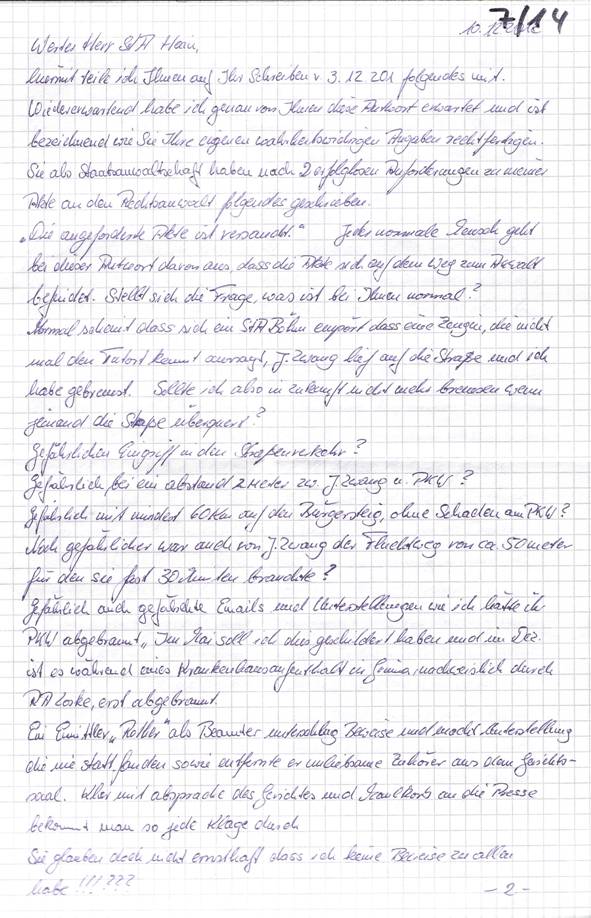 7/14
10.12.2012
Werter Herr StA Hain,
hiermit teile ich Ihnen auf Ihr Schreiben v 3.12.201 folgendes mit.
Wiedererwartend habe ich genau von Ihnen diese Antwort erwartet und ist
bezeichnend wie Sie Ihre eigenen wahrheitswidrigen Angaben rechtfertigen.
Sie als Staatsanwaltschaft haben nach 2 erfolglosen Anforderungen zu meiner
Akte an den Rechtsanwalt folgendes geschrieben.
„Die angeforderte Akte ist versandt." Jeder normale Mensch geht
bei dieser Antwort davon aus, dass die Akte sich auf dem Weg zum Anwalt
befindet. Stellt sich die Frage, was ist bei Ihnen normal?
Normal scheint dass sich ein StA Böhm empört dass eine Zeugen, die nicht
mal den Tatort kennt aussagt, J. Zwang lief auf die Straße und ich
habe gebremst. Sollte ich also in Zukunft nicht mehr bremsen wenn
jemand die Straße überquert?
Gefährlichen Eingriff in den Straßenverkehr?
Gefährlich bei ein abstand 2 Meter zw. J. Zwang u. PKW?
Gefährlich mit mindest 60 Km auf den Bürgersteig, ohne Schaden am PKW?
Noch gefährlicher war auch von J. Zwang der Fluchtweg von ca. 50 meter
für den sie fast 30 Minuten brauchte?
Gefährlich auch gefälschte Emails und Unterstellungen wie ich hätte ihr
PKW abgebrannt, Im Mai soll ich dies geschildert haben und im Dez.
ist es während eines Krankenhausaufenthalt in Grimma, nachweislich durch
RA Loske, erst abgebrannt.
Ein Emittler „Rother" als Beamter unterschlug Beweise und macht Unterstellung
die nie statt fanden sowie entfernte er unliebsame Zuhörer aus dem Gerichts-
saal. Klar mit absprache des Gerichtes und Maulkorb an die Presse
bekommt man so jede Klage durch
Sie glauben doch nicht ernsthaft dass ich keine Beweise zu allen
habe !!!???
- 2 -